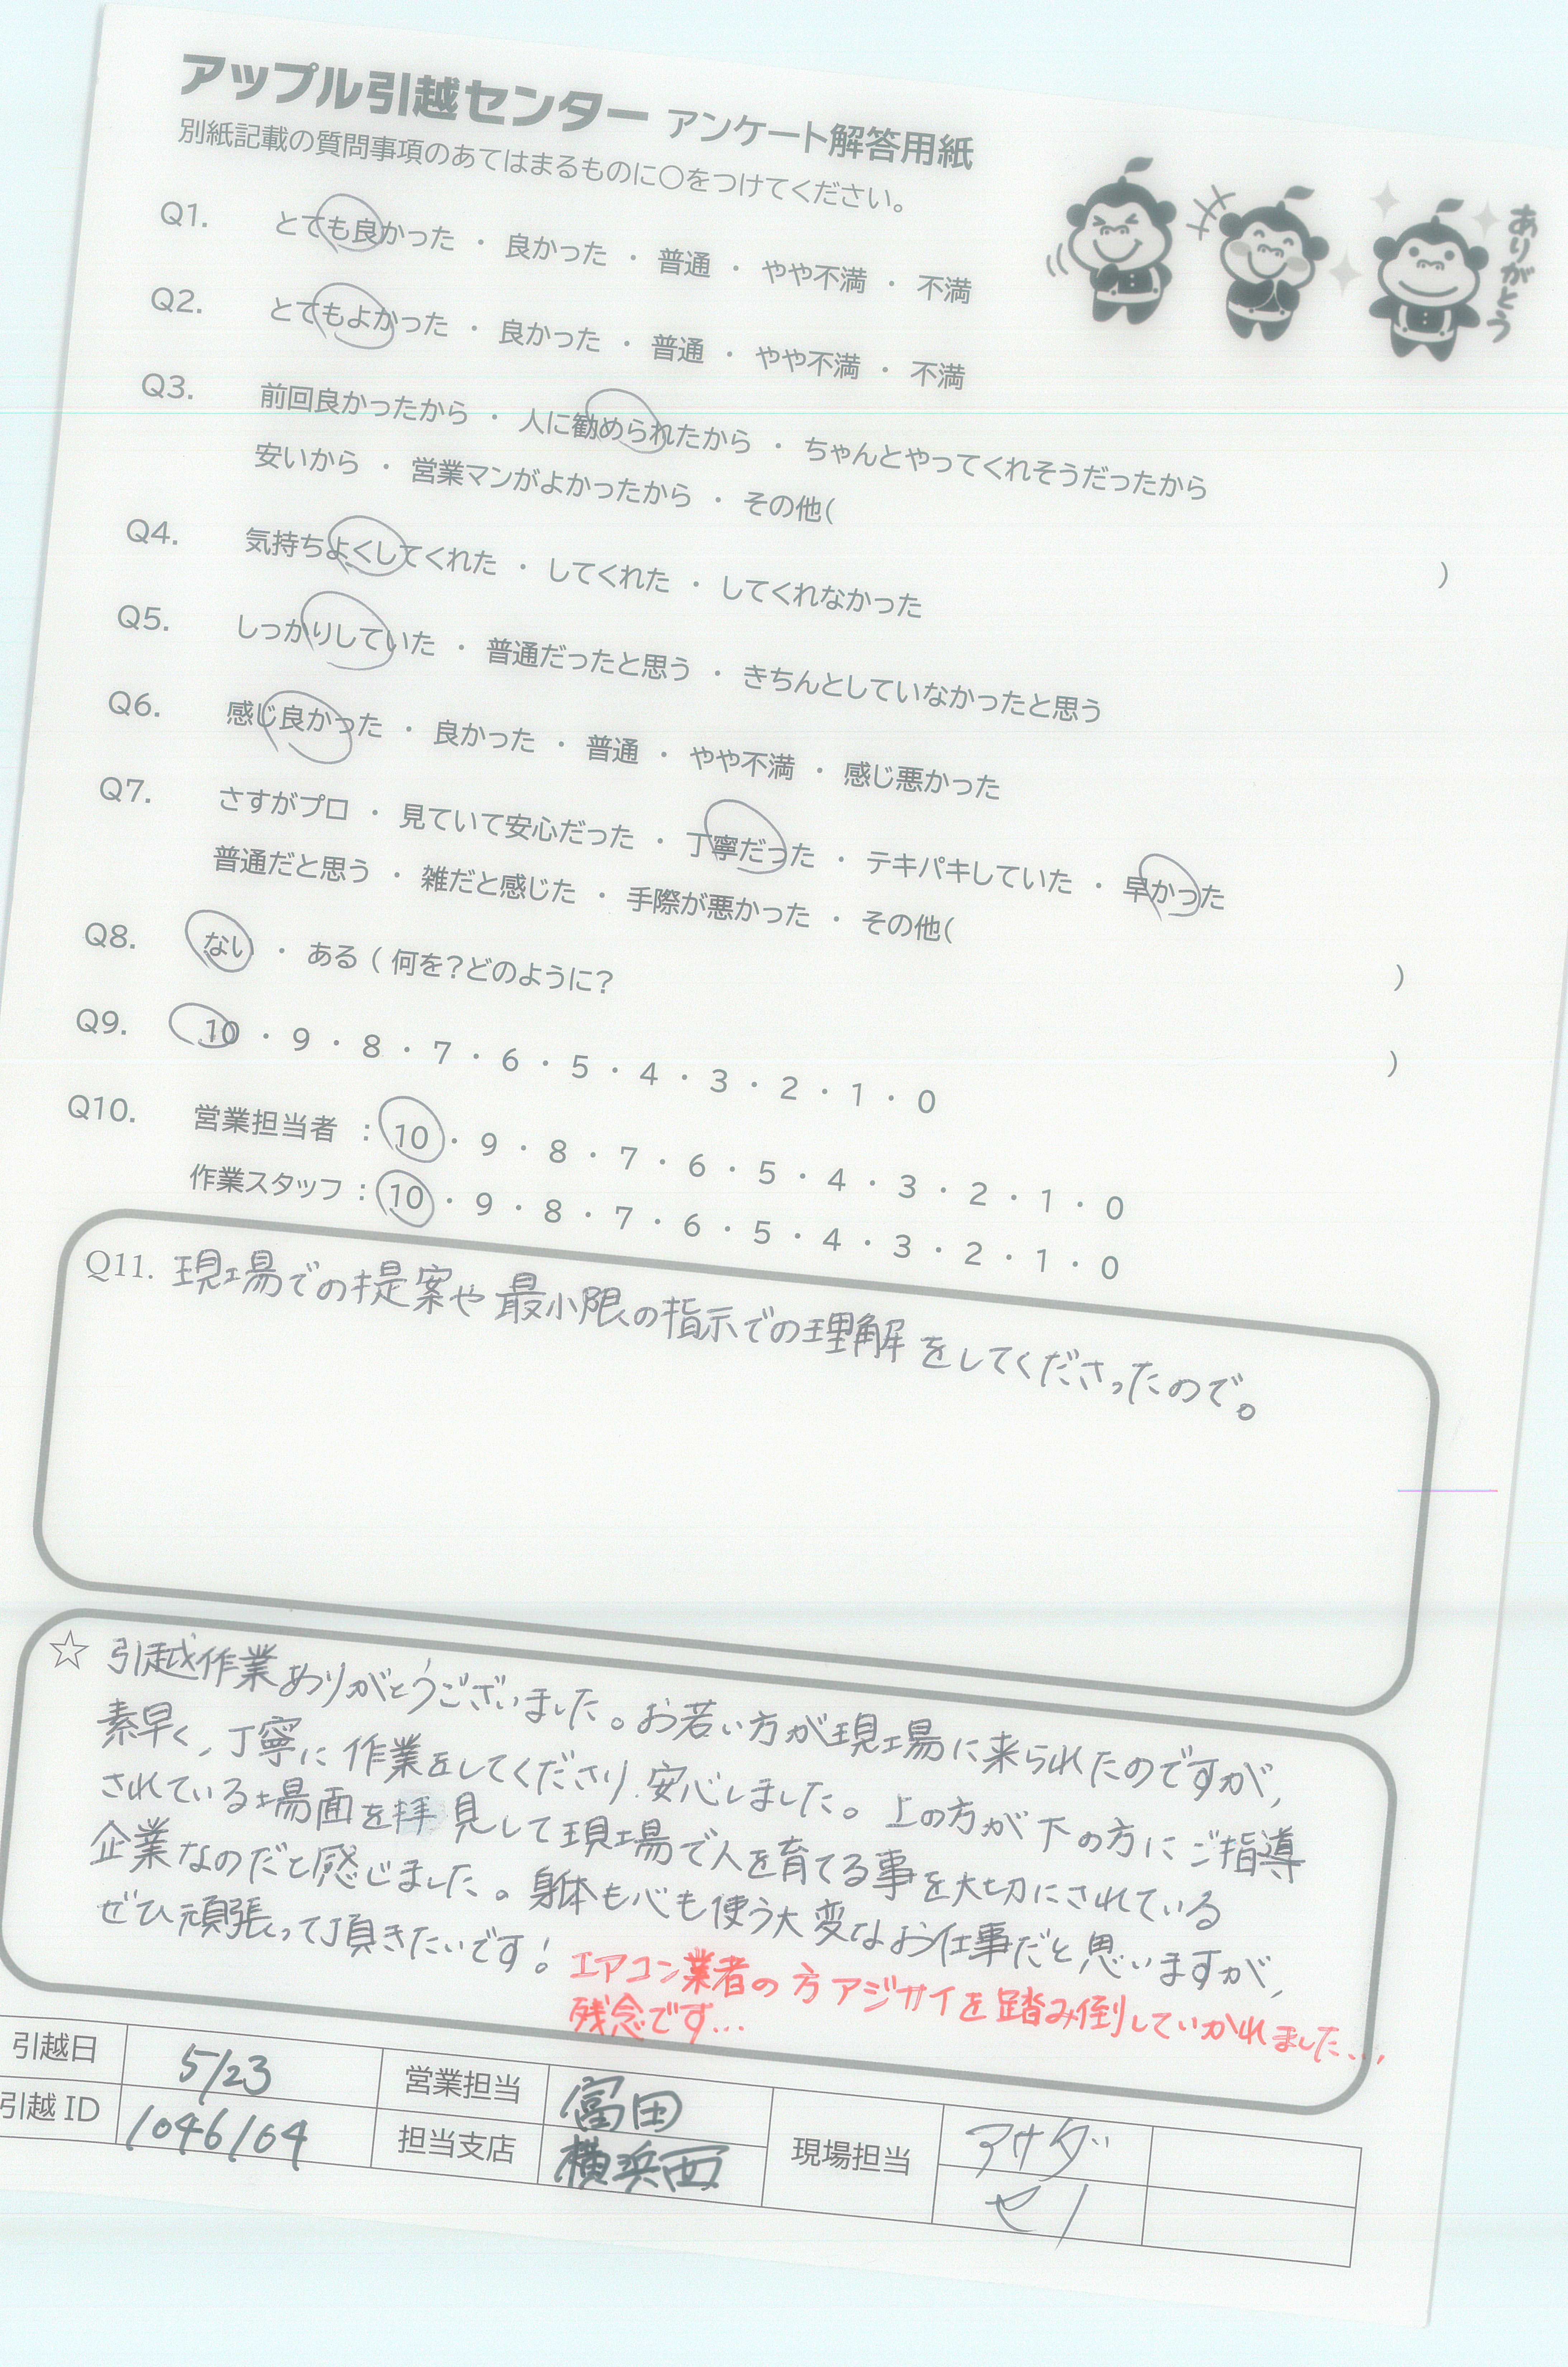 アップル引越センター アンケート解答用紙
別紙記載の質問事項のあてはまるものに○をつけてください。
ありがとう
Q1. とても良かった ・ 良かった ・ 普通 ・ やや不満 ・ 不満
Q2. とてもよかった ・ 良かった ・ 普通 ・ やや不満 ・ 不満
Q3. 前回良かったから ・ 人に勧められたから ・ ちゃんとやってくれそうだったから
安いから ・ 営業マンがよかったから ・ その他( )
Q4. 気持ちよくしてくれた ・ してくれた ・ してくれなかった
Q5. しっかりしていた ・ 普通だったと思う ・ きちんとしていなかったと思う
Q6. 感じ良かった ・ 良かった ・ 普通 ・ やや不満 ・ 感じ悪かった
Q7. さすがプロ ・ 見ていて安心だった ・ 丁寧だった ・ テキパキしていた ・ 早かった
普通だと思う ・ 雑だと感じた ・ 手際が悪かった ・ その他( )
Q8. ない ・ ある ( 何を?どのように? )
Q9. 10 ・ 9 ・ 8 ・ 7 ・ 6 ・ 5 ・ 4 ・ 3 ・ 2 ・ 1 ・ 0
Q10. 営業担当者 : 10 ・ 9 ・ 8 ・ 7 ・ 6 ・ 5 ・ 4 ・ 3 ・ 2 ・ 1 ・ 0
作業スタッフ : 10 ・ 9 ・ 8 ・ 7 ・ 6 ・ 5 ・ 4 ・ 3 ・ 2 ・ 1 ・ 0
Q11. 現場での提案や最小限の指示での理解をしてくださったので。
☆ 引越作業ありがとうございました。お若い方が現場に来られたのですが、
素早く、丁寧に作業をしてくださり、安心しました。上の方が下の方にご指導
されている場面を拝見して現場で人を育てる事を大切にされている
企業なのだと感じました。身体も心も使う大変なお仕事だと思いますが、
ぜひ頑張って頂きたいです!
エアコン業者の方アジサイを踏み倒していかれました...
残念です...
引越日 5/23 営業担当 富田 現場担当 アサダ
引越 ID 1046164 担当支店 横浜西 セノ